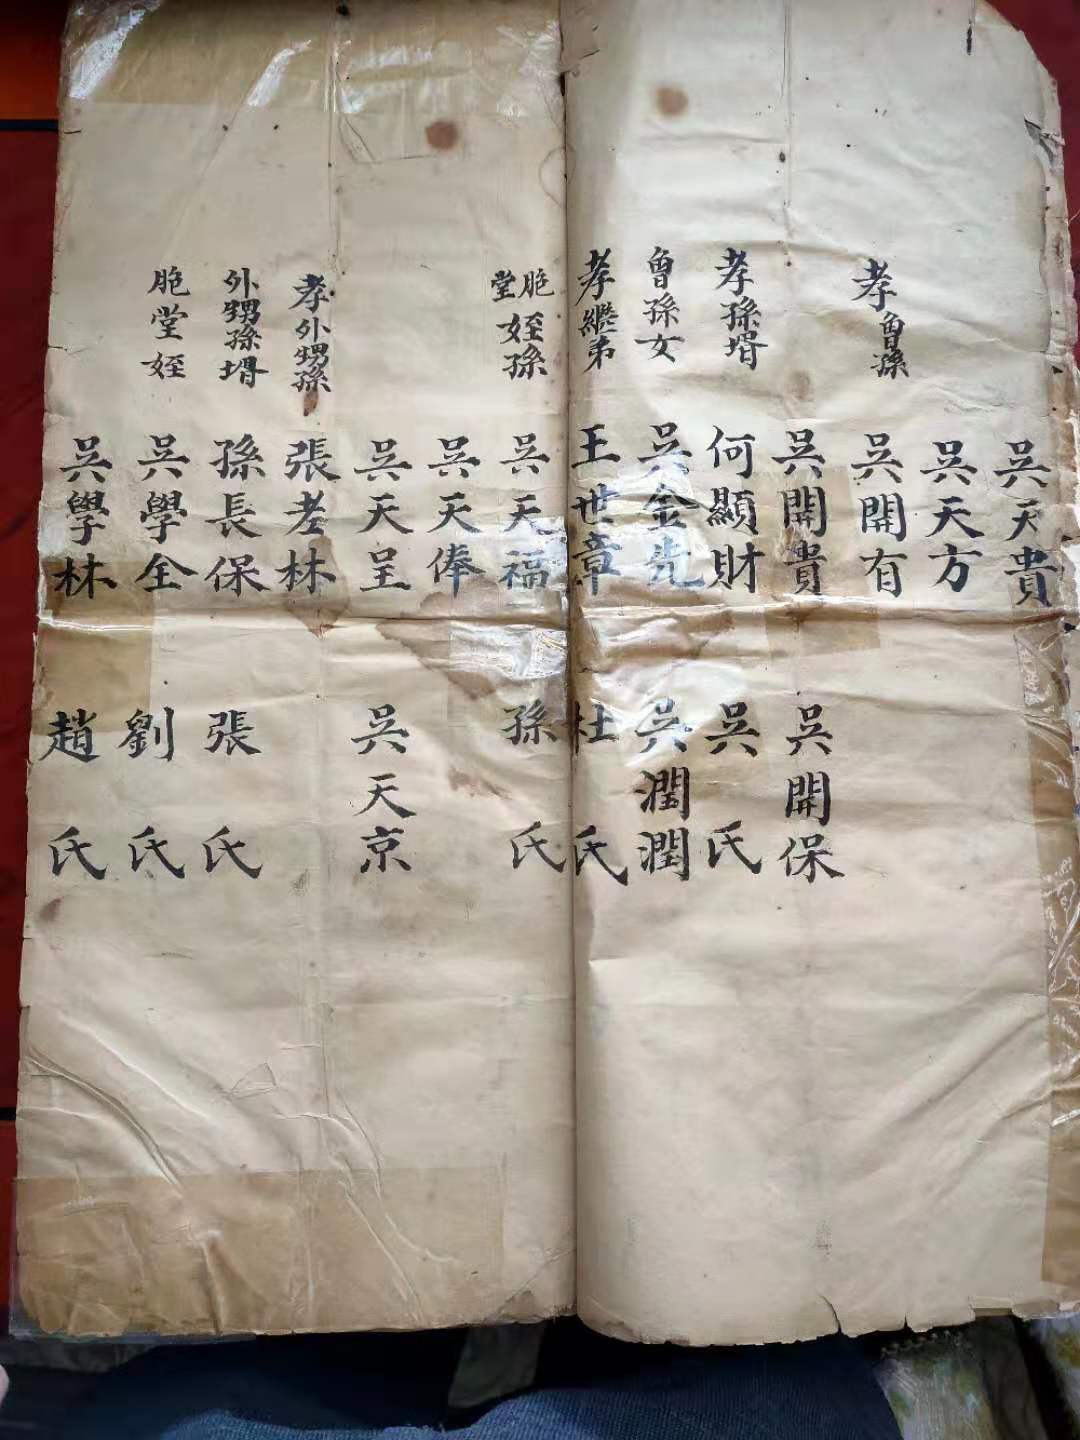 吳天貴
吳天方
孝曾孫 吳開有
吳開貴 吳開保
孝孫壻 何顯財 吳氏
曾孫女 吳金先 吳潤潤
孝繼弟 王世章 杜氏
胞堂姪孫 吳天福 孫氏
吳天俸
吳天呈 吳天京
孝外甥孫 張孝林
外甥孫壻 孫長保 張氏
胞堂姪 吳學全 劉氏
吳學林 趙氏